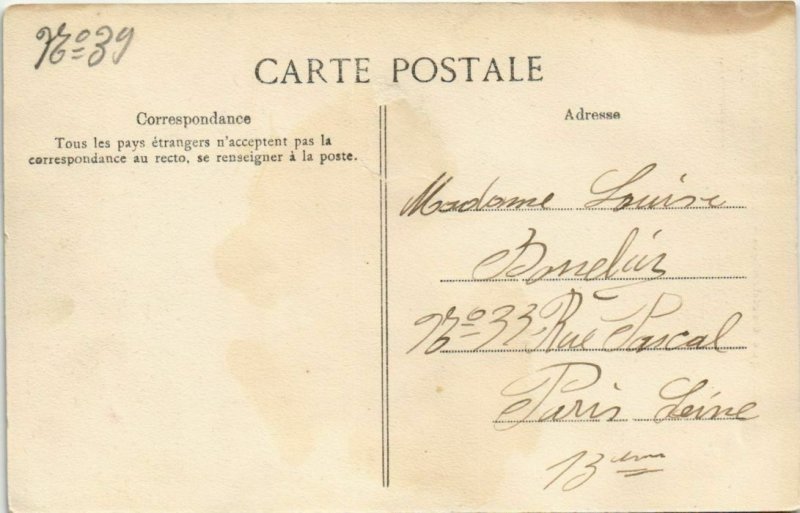 No 39
CARTE POSTALE
Correspondance
Tous les pays étrangers n'acceptent pas la
correspondance au recto, se renseigner à la poste.
Adresse
Madame Louise
No 33 Rue Pascal
Paris Seine
13ème